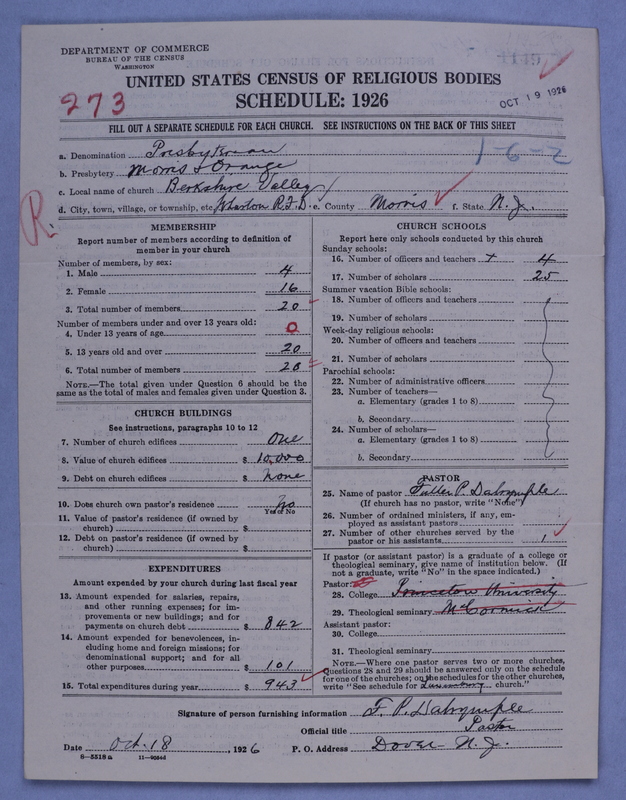 DEPARTMENT OF COMMERCE
BUREAU OF THE CENSUS
WASHINGTON
UNITED STATES CENSUS OF RELIGIOUS BODIES
SCHEDULE: 1926
273
OCT 19 1926
FILL OUT A SEPARATE SCHEDULE FOR EACH CHURCH. SEE INSTRUCTIONS ON THE BACK OF THIS SHEET
a. Denomination Presbyterian
1-6-2
b. Presbytery Morris & Orange
c. Local name of church Berkshire Valley
d. City, town, village, or township, etc. Wharton R.F.D. e. County Morris f. State N.J.
R.
MEMBERSHIP
Report number of members according to definition of
member in your church
Number of members, by sex:
1. Male 4
2. Female 16
3. Total number of members 20
Number of members under and over 13 years old:
4. Under 13 years of age 0
5. 13 years old and over 20
6. Total number of members 20
NOTE.—The total given under Question 6 should be the
same as the total of males and females given under Question 3.
CHURCH BUILDINGS
See instructions, paragraphs 10 to 12
7. Number of church edifices One
8. Value of church edifices $ 10,000
9. Debt on church edifices $ None
10. Does church own pastor's residence No
Yes or No
11. Value of pastor's residence (if owned by
church) $
12. Debt on pastor's residence (if owned by
church) $
EXPENDITURES
Amount expended by your church during last fiscal year
13. Amount expended for salaries, repairs,
and other running expenses; for im-
provements or new buildings; and for
payments on church debt $ 842
14. Amount expended for benevolences, in-
cluding home and foreign missions; for
denominational support; and for all
other purposes $ 101
15. Total expenditures during year $ 943
CHURCH SCHOOLS
Report here only schools conducted by this church
Sunday schools:
16. Number of officers and teachers 4
17. Number of scholars 25
Summer vacation Bible schools:
18. Number of officers and teachers
19. Number of scholars
Week-day religious schools:
20. Number of officers and teachers
21. Number of scholars
Parochial schools:
22. Number of administrative officers
23. Number of teachers—
a. Elementary (grades 1 to 8)
b. Secondary
24. Number of scholars—
a. Elementary (grades 1 to 8)
b. Secondary
PASTOR
25. Name of pastor Fuller P. Dalrymple
(If church has no pastor, write "None")
26. Number of ordained ministers, if any, em-
ployed as assistant pastors
27. Number of other churches served by the
pastor or his assistants 1
If pastor (or assistant pastor) is a graduate of a college or
theological seminary, give name of institution below. (If
not a graduate, write "No" in the space indicated.)
Pastor:
28. College Princeton University
29. Theological seminary McCormick
Assistant pastor:
30. College
31. Theological seminary
NOTE.—Where one pastor serves two or more churches,
Questions 28 and 29 should be answered only on the schedule
for one of the churches; on the schedules for the other churches,
write "See schedule for Luxemburg church."
Signature of person furnishing information F. P. Dalrymple
Official title Pastor
Date Oct. 18, 1926 P. O. Address Dover N. J.
8—5518a 11—9034d